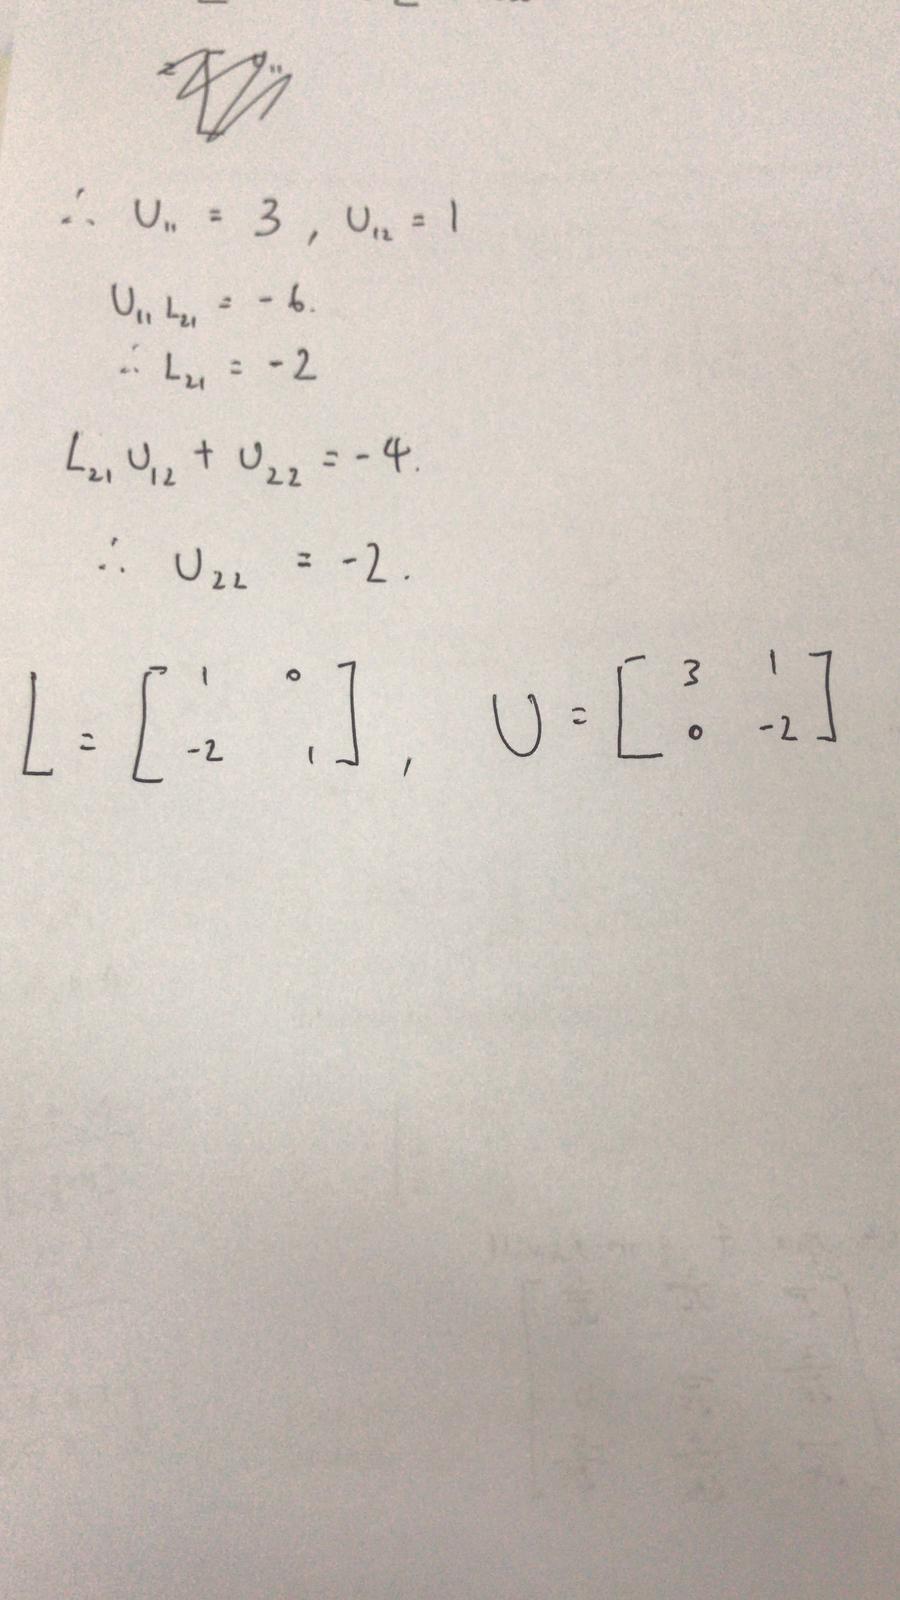 ∴ U₁₁ = 3 , U₁₂ = 1
U₁₁ L₂₁ = -6.
∴ L₂₁ = -2
L₂₁ U₁₂ + U₂₂ = -4.
∴ U₂₂ = -2.
L = [ 1 0 ] , U = [ 3 1 ]
-2 1 0 -2